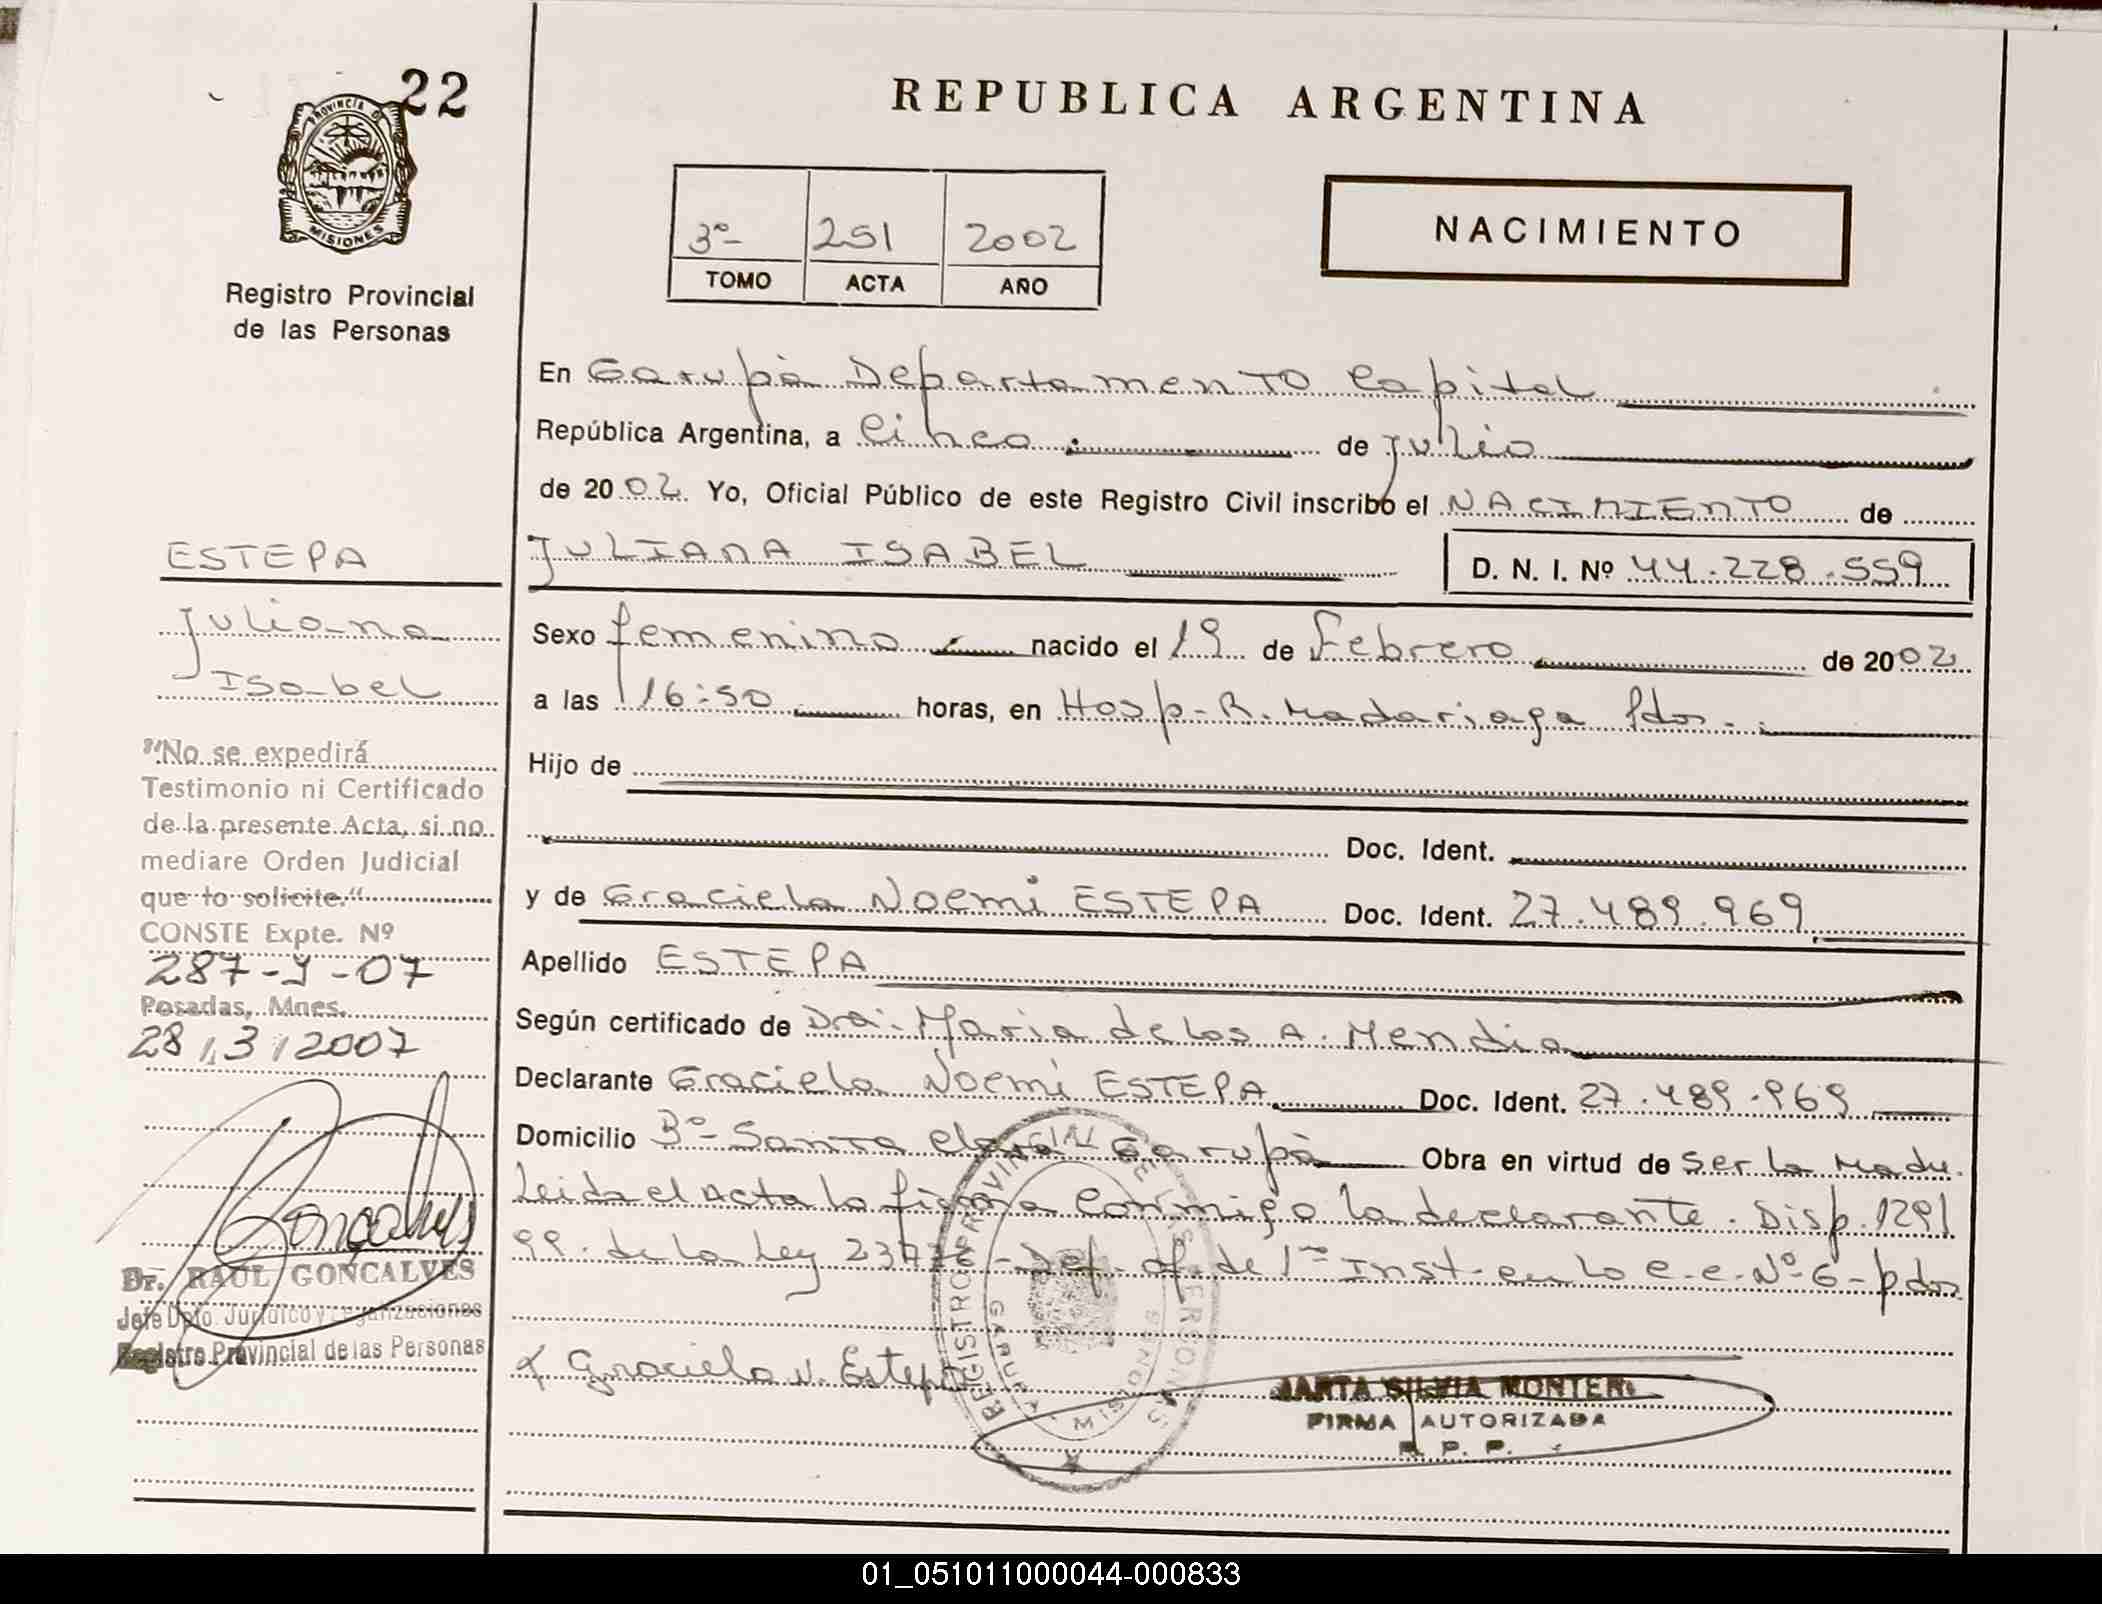 22
PROVINCIA D
MISIONES
Registro Provincial
de las Personas
REPUBLICA ARGENTINA
3º- 251 2002
TOMO ACTA AÑO
NACIMIENTO
En Garupà Departamento Capital
República Argentina, a Cinco de Julio
de 2002 Yo, Oficial Público de este Registro Civil inscribo el NACIMIENTO de
JULIANA ISABEL D. N. I. Nº 44.228.559
Sexo femenino nacido el 19 de Febrero de 2002
a las 16:50 horas, en Hosp. R. Madariaga Pdas.
Hijo de
Doc. Ident.
y de Graciela Noemi ESTEPA Doc. Ident. 27.489.969
Apellido ESTEPA
Según certificado de Dra. Maria de los A. Mendia
Declarante Graciela Noemi ESTEPA Doc. Ident. 27.489.969
Domicilio Bº- Santa Clara Garupà Obra en virtud de Ser la Madre.
Leida el Acta la firma Conmigo la declarante. Disp. 1291
99. de la Ley 23776 - Def. of. de 1ra Inst. en lo C.C. Nº 6 - pdas
Graciela N. Estepa
REGISTRO PROVINCIAL DE LAS PERSONAS
GARUPA - MISIONES
MARTA SILVIA MONTER
FIRMA AUTORIZADA
R. P. P.
ESTEPA
Juliana
Isabel
"No se expedirá
Testimonio ni Certificado
de la presente Acta, si no
mediare Orden Judicial
que lo solicite."
CONSTE Expte. Nº
287-J-07
Posadas, Mnes.
28/3/2007
Dr. RAUL GONÇALVES
Jefe Dpto. Jurídico y Legalizaciones
Registro Provincial de las Personas
01_051011000044-000833